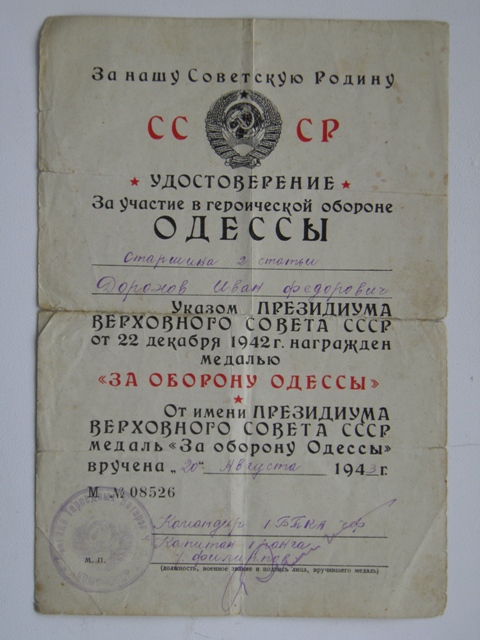 За нашу Советскую Родину
СССР
УДОСТОВЕРЕНИЕ
За участие в героической обороне
ОДЕССЫ
Старшина 2 статьи
Дорохов Иван Федорович
Указом ПРЕЗИДИУМА
ВЕРХОВНОГО СОВЕТА СССР
от 22 декабря 1942 г. награжден
медалью
«ЗА ОБОРОНУ ОДЕССЫ»
От имени ПРЕЗИДИУМА
ВЕРХОВНОГО СОВЕТА СССР
медаль «За оборону Одессы»
вручена „20" Августа 1943 г.
М № 08526
Командир 1 БТКА ЧФ
Капитан 1 ранга
Филиппов
М. П.
(должность, военное звание и подпись лица, вручившего медаль)